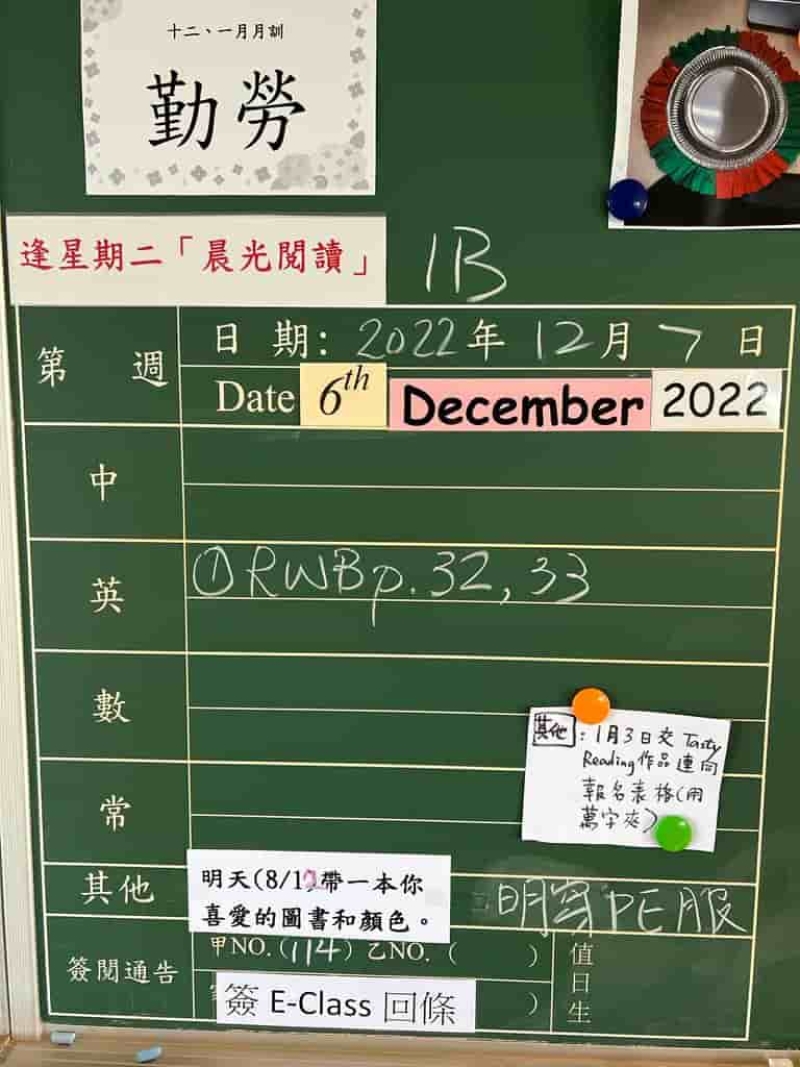 十二、一月月訓
勤勞
逢星期二「晨光閱讀」
1B
第 週
日 期: 2022年 12月 7 日
Date 6th December 2022
中
英
① RWB p. 32, 33
數
常
其他 : 1月3日交 Tasty
Reading作品連同
報名表格(用
萬字夾)
其他
明天(8/12帶一本你
喜愛的圖書和顏色。
明穿PE服
簽閱通告
甲NO.(114) 乙NO. ( )
簽 E-Class 回條 )
值日生